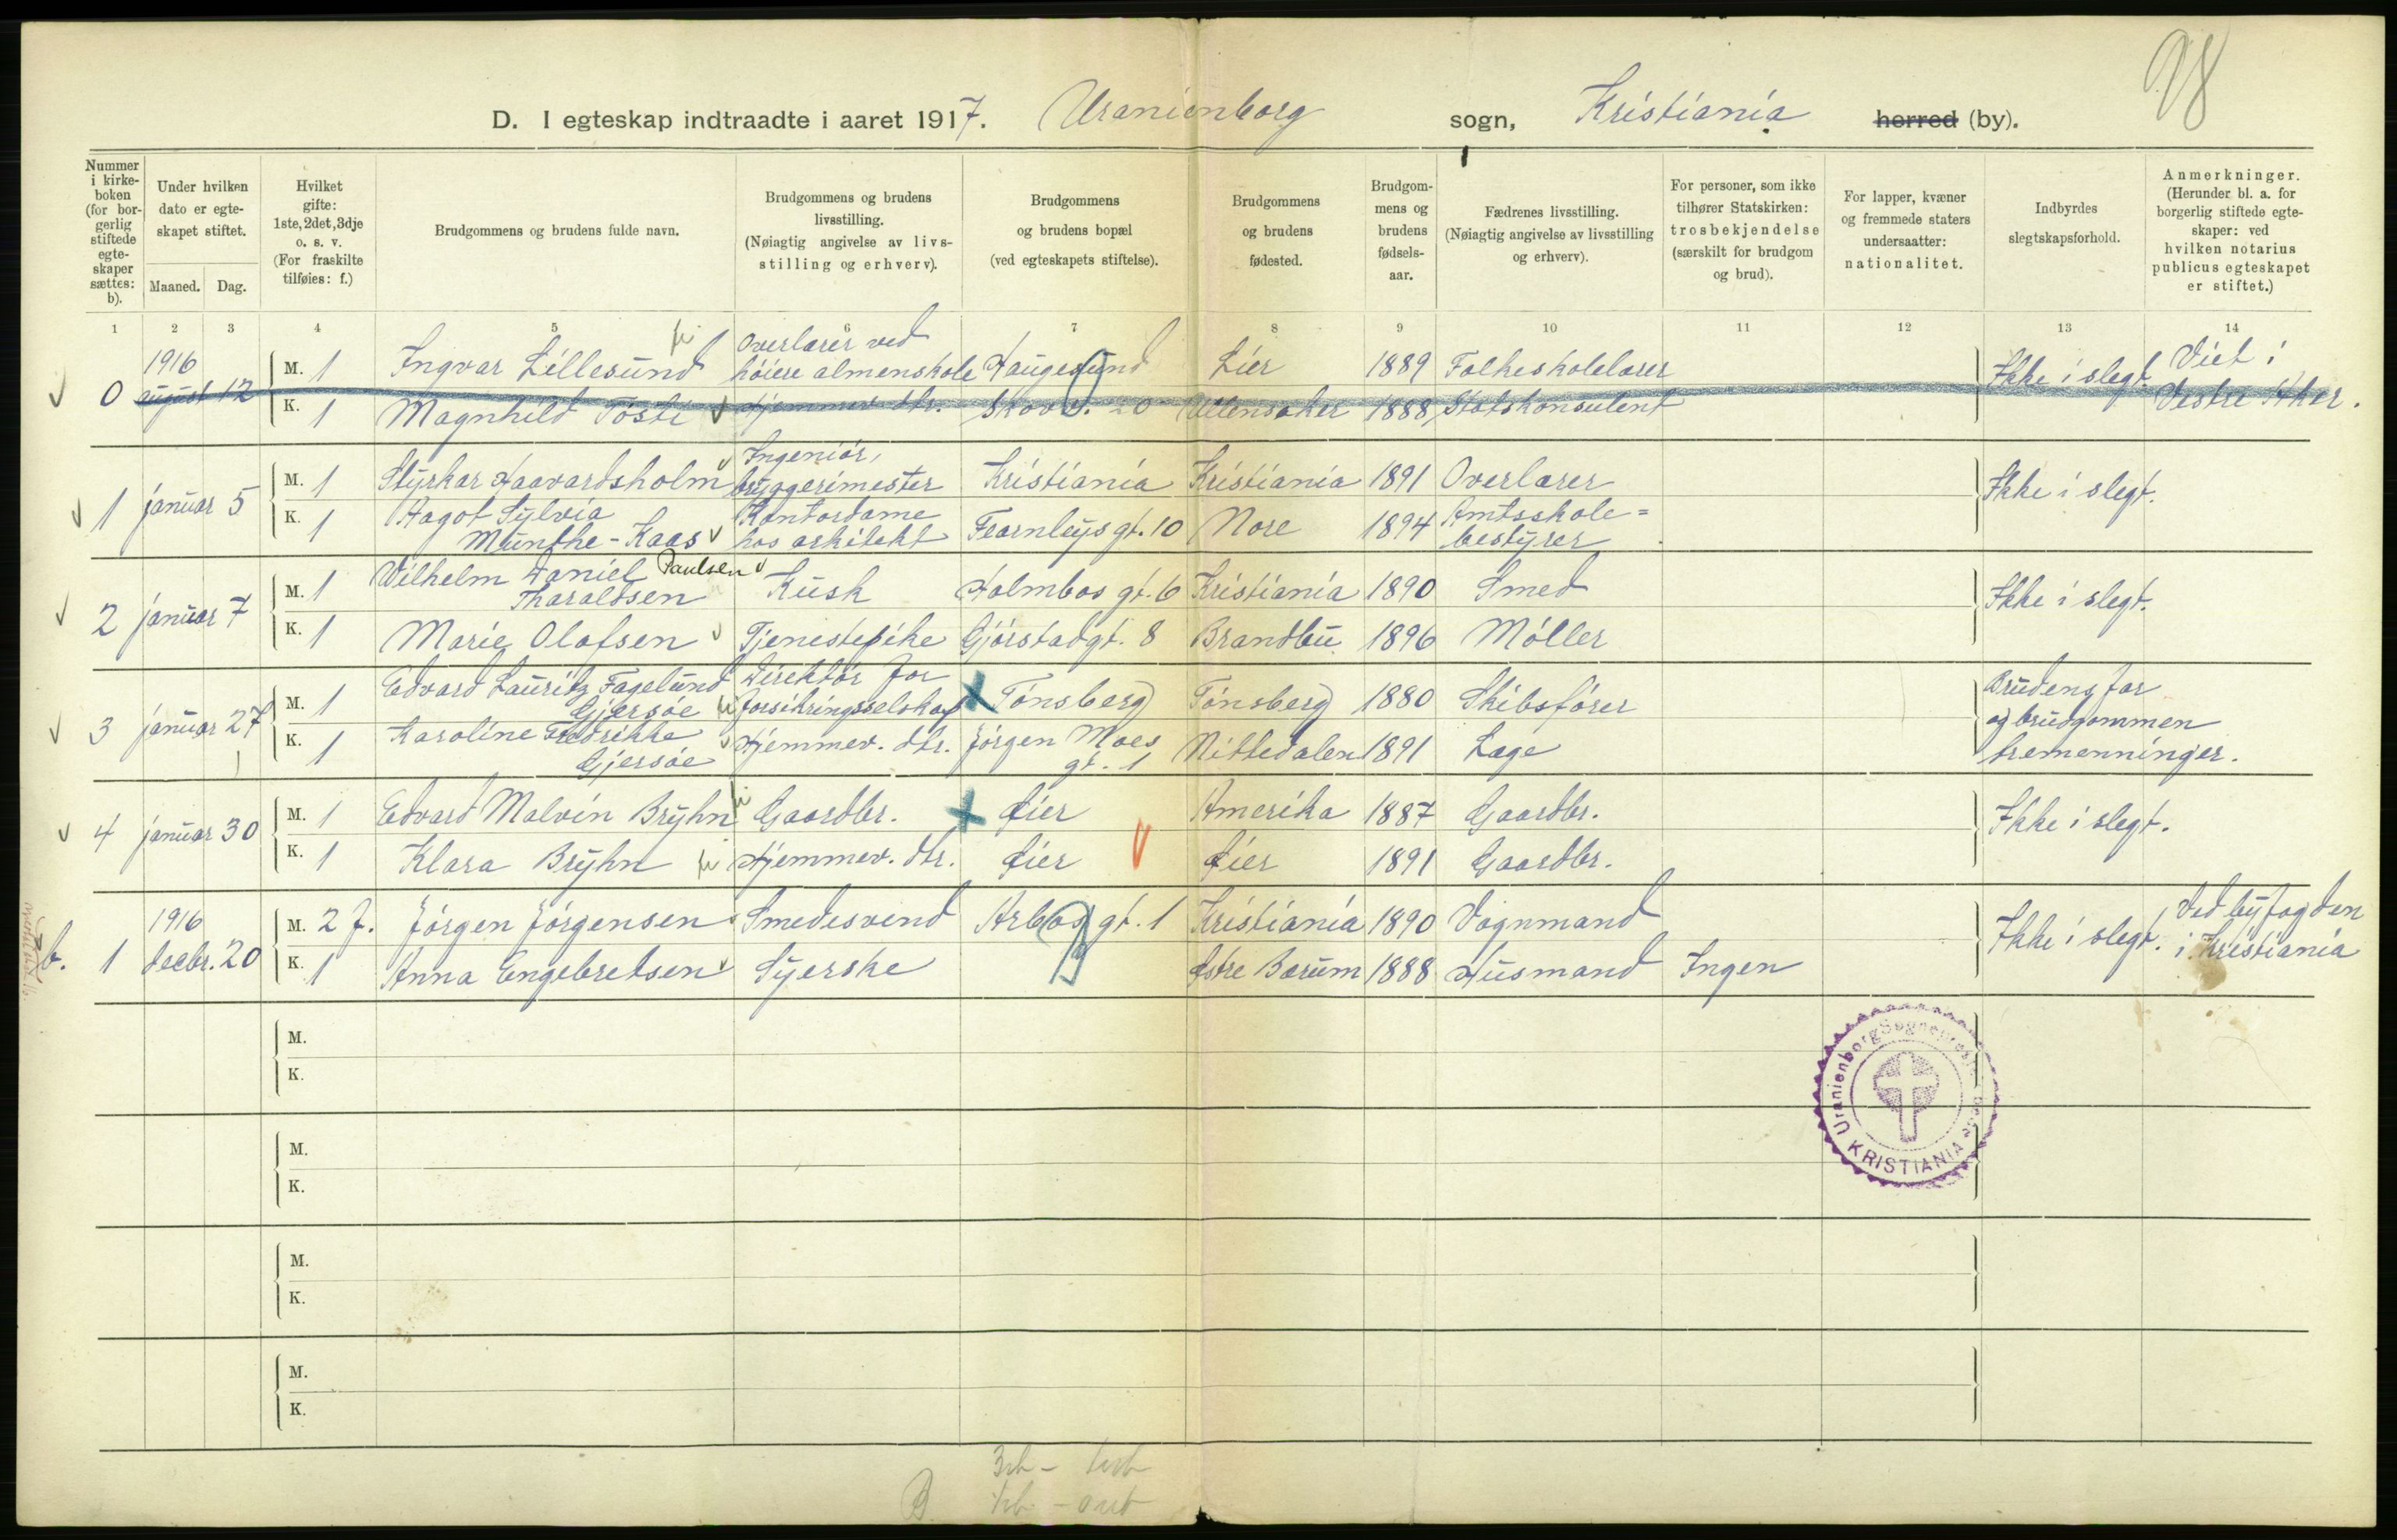 98
D. I egteskap indtraadte i aaret 1917. Uranienborg sogn, Kristiania herred (by).
Nummer i kirkeboken (for borgerlig stiftede egteskaper sættes: b).
Under hvilken dato er egteskapet stiftet.
Maaned. Dag.
Hvilket gifte: 1ste, 2det, 3dje o. s. v. (For fraskilte tilføies: f.)
Brudgommens og brudens fulde navn.
Brudgommens og brudens livsstilling. (Nøiagtig angivelse av livsstilling og erhverv).
Brudgommens og brudens bopæl (ved egteskapets stiftelse).
Brudgommens og brudens fødested.
Brudgommens og brudens fødselsaar.
Fædrenes livsstilling. (Nøiagtig angivelse av livsstilling og erhverv).
For personer, som ikke tilhører Statskirken: trosbekjendelse (særskilt for brudgom og brud).
For lapper, kvæner og fremmede staters undersaatter: nationalitet.
Indbyrdes slegtskapsforhold.
Anmerkninger. (Herunder bl. a. for borgerlig stiftede egteskaper: ved hvilken notarius publicus egteskapet er stiftet.)
1 2 3 4 5 6 7 8 9 10 11 12 13 14
0 1916 august 12
M. 1 Ingvar Lillesund Overlærer ved høiere almenskole Haugesund Lier 1889 Folkeskolelærer
K. 1 Magnhild Tosti Hjemmev. dtr. Skovv. 20 Ullensaker 1888 Statskonsulent
Ikke i slegt. Viet i Vestre Aker.
1 januar 5
M. 1 Styrkar Haavardsholm Ingeniør, bryggerimester Kristiania Kristiania 1891 Overlærer
K. 1 Aagot Sylvia Munthe-Kaas Kontordame hos arkitekt Fearnleys gt. 10 Nore 1894 Amtsskole=bestyrer
Ikke i slegt.
2 januar 7
M. 1 Wilhelm Daniel Paulsen Tharaldsen Kusk Holmbos gt. 6 Kristiania 1890 Smed
K. 1 Marie Olafsen Tjenestepike Gjørstadgt. 8 Brandbu 1896 Møller
Ikke i slegt.
3 januar 27
M. 1 Edvard Lauritz Fagelund Gjersøe Direktør for forsikringsselskap Tønsberg Tønsberg 1880 Skibsfører
K. 1 Karoline Fredrikke Gjersøe Hjemmev. dtr. Jørgen Moes gt. 1 Nittedalen 1891 Læge
Brudens far og brudgommen tremenninger.
4 januar 30
M. 1 Edvard Malvin Bryhn Gaardbr. Lier Amerika 1887 Gaardbr.
K. 1 Klara Bryhn Hjemmev. dtr. Lier Lier 1891 Gaardbr.
Ikke i slegt.
b. 1 1916 decbr. 20
M. 2 f. Jørgen Jørgensen Smedesvend Arbos gt. 1 Kristiania 1890 Vognmand
K. 1 Anna Engebretsen Syerske Østre Bærum 1888 Husmand Ingen
Ikke i slegt. Ved byfogden i Kristiania
M.
K.
M.
K.
M.
K.
M.
K.
Uranienborg Sogneprest
KRISTIANIA
B